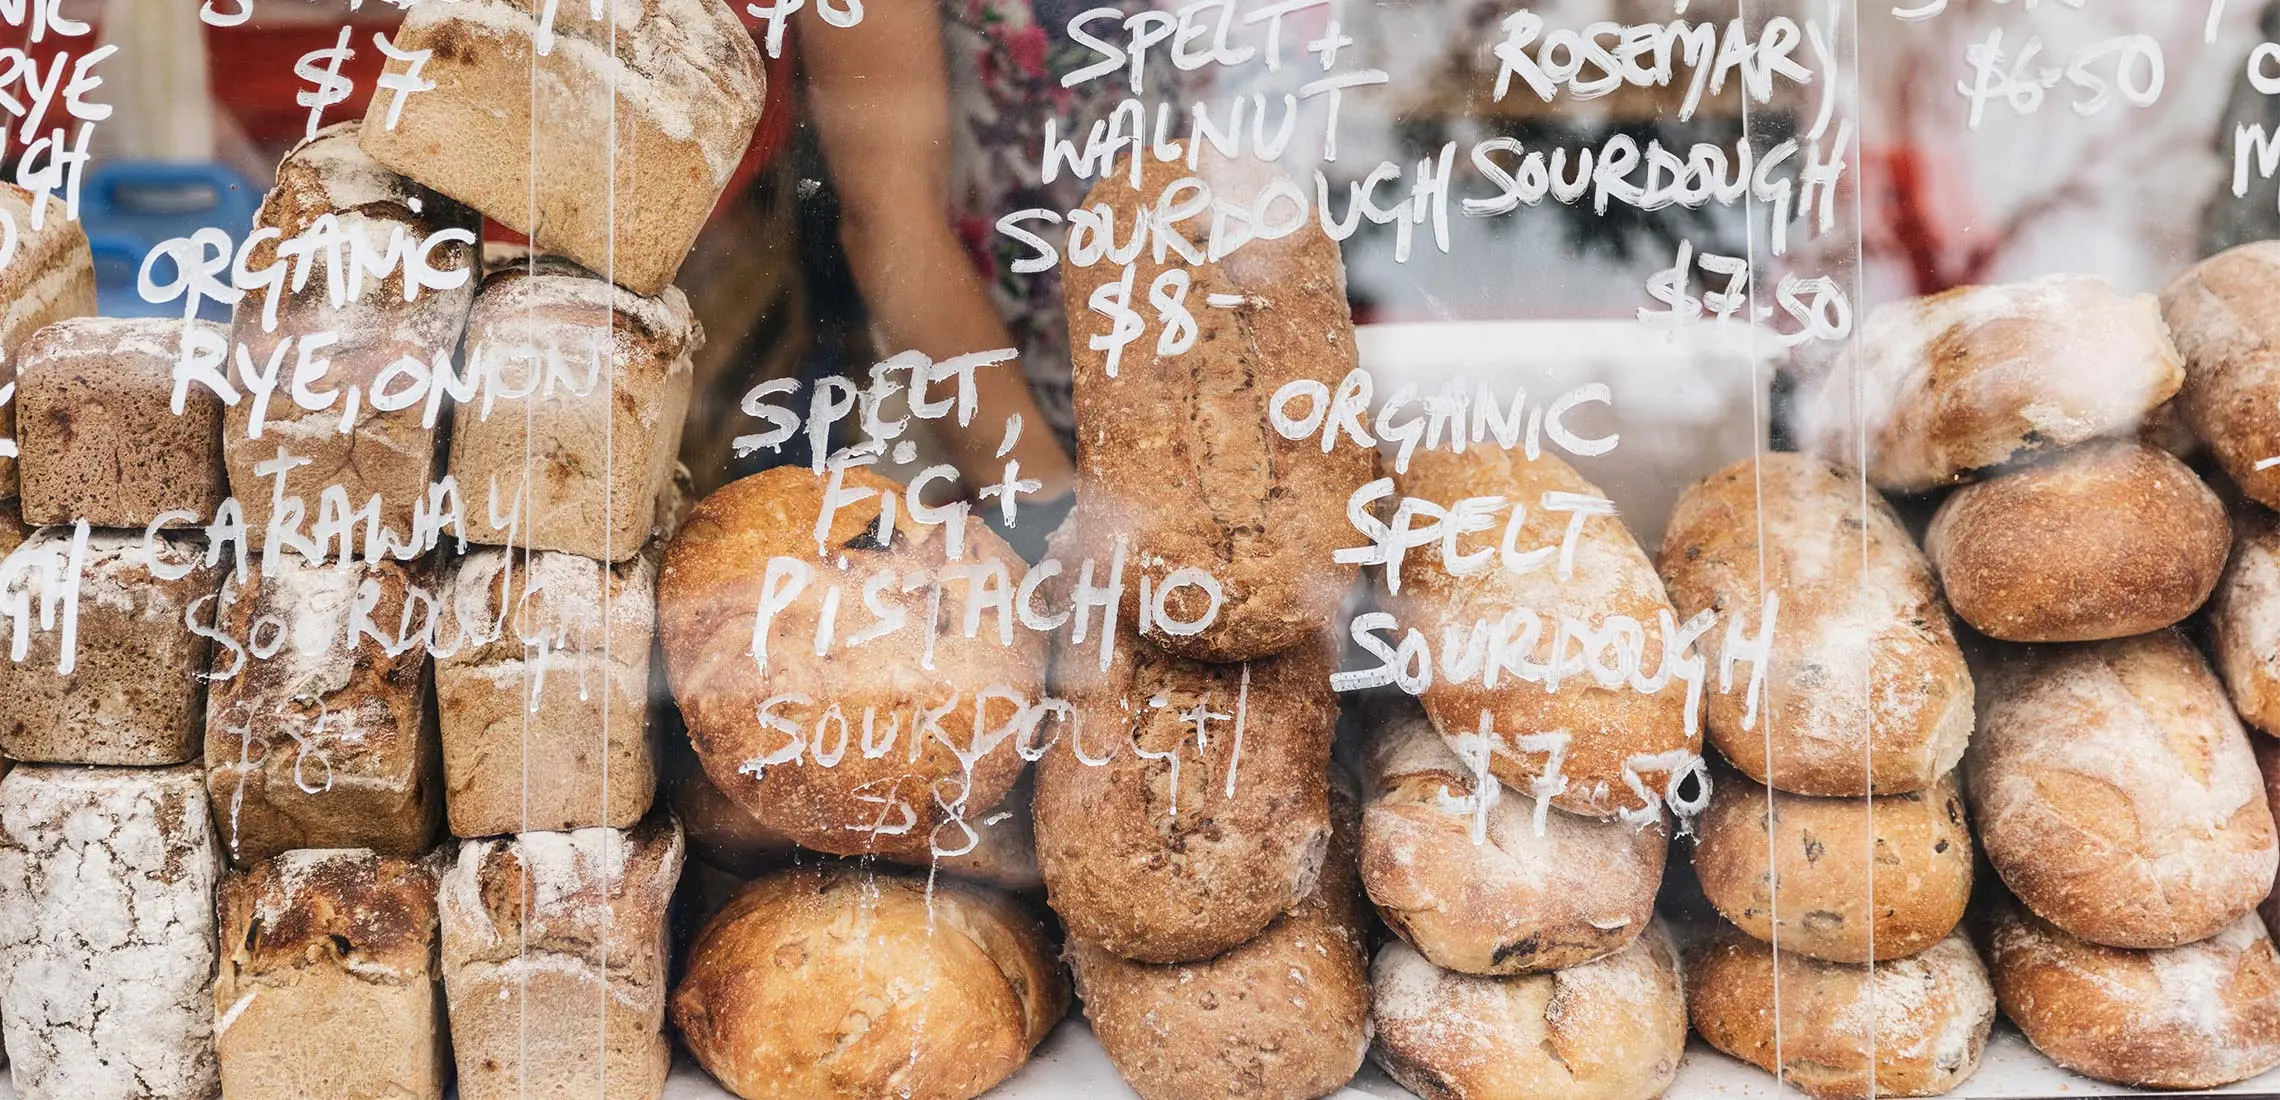 RYE
$7
ORGANIC
RYE, ONION
+
CARAWAY
SOURDOUGH
$8-
SPELT,
FIG +
PISTACHIO
SOURDOUGH
$8-
SPELT +
WALNUT
SOURDOUGH
$8-
ROSEMARY
SOURDOUGH
$7.50
ORGANIC
SPELT
SOURDOUGH
$7.50
$6.50